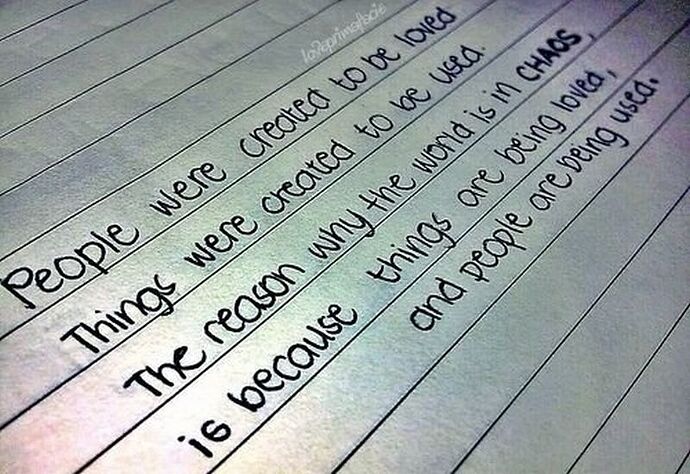 lo3eprimafacie
People were created to be loved
Things were created to be used.
The reason why the world is in CHAOS,
is because things are being loved,
and people are being used.